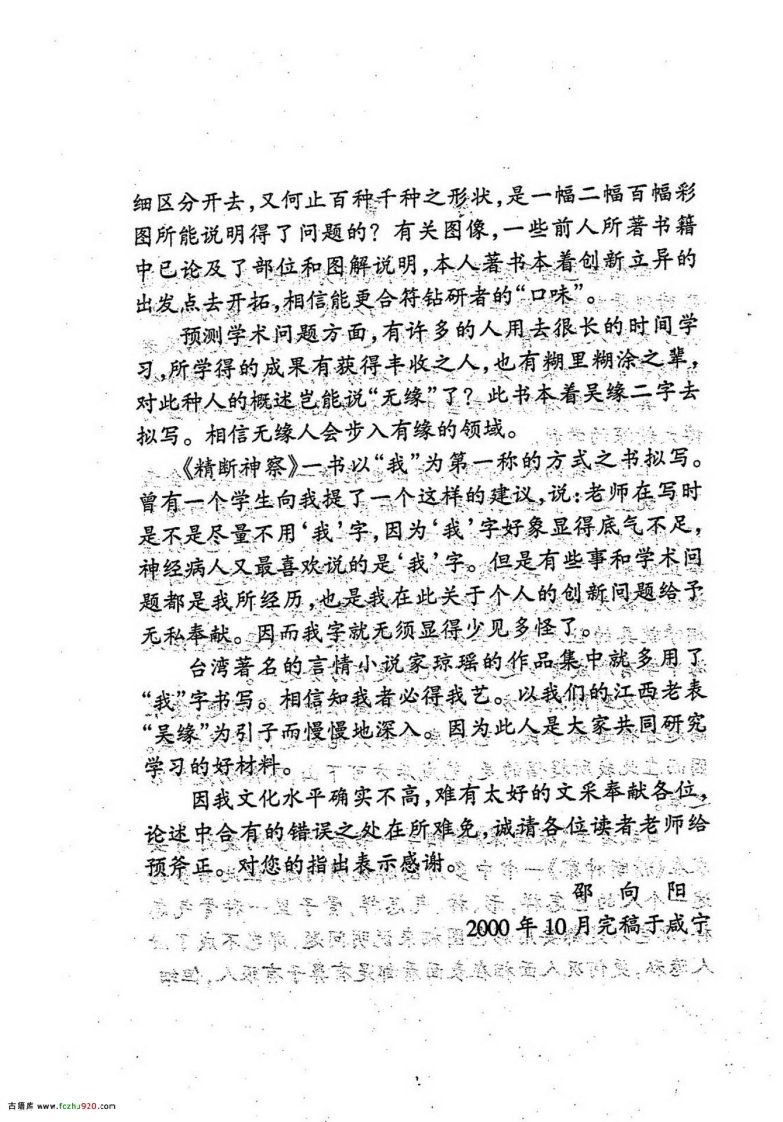 细区分开去,又何止百种千种之形状,是一幅二幅百幅彩
图所能说明得了问题的？有关图像,一些前人所著书籍
中已论及了部位和图解说明,本人著书本着创新立异的
出发点去开拓,相信能更合符钻研者的“口味”。
预测学术问题方面,有许多的人用去很长的时间学
习,所学得的成果有获得丰收之人,也有糊里糊涂之辈,
对此种人的概述岂能说“无缘”了？此书本着吴缘二字去
拟写。相信无缘人会步入有缘的领域。
《精断神察》一书以“我”为第一称的方式之书拟写。
曾有一个学生向我提了一个这样的建议,说:老师在写时
是不是尽量不用‘我’字,因为‘我’字好象显得底气不足,
神经病人又最喜欢说的是‘我’字。但是有些事和学术问
题都是我所经历,也是我在此关于个人的创新问题给予
无私奉献。因而我字就无须显得少见多怪了。
台湾著名的言情小说家琼瑶的作品集中就多用了
“我”字书写。相信知我者必得我艺。以我们的江西老表
“吴缘”为引子而慢慢地深入。因为此人是大家共同研究
学习的好材料。
因我文化水平确实不高,难有太好的文采奉献各位,
论述中合有的错误之处在所难免,诚请各位读者老师给
预斧正。对您的指出表示感谢。
邵 向 阳
2000 年 10 月完稿于咸宁
古籍库 www.fczhu920.com